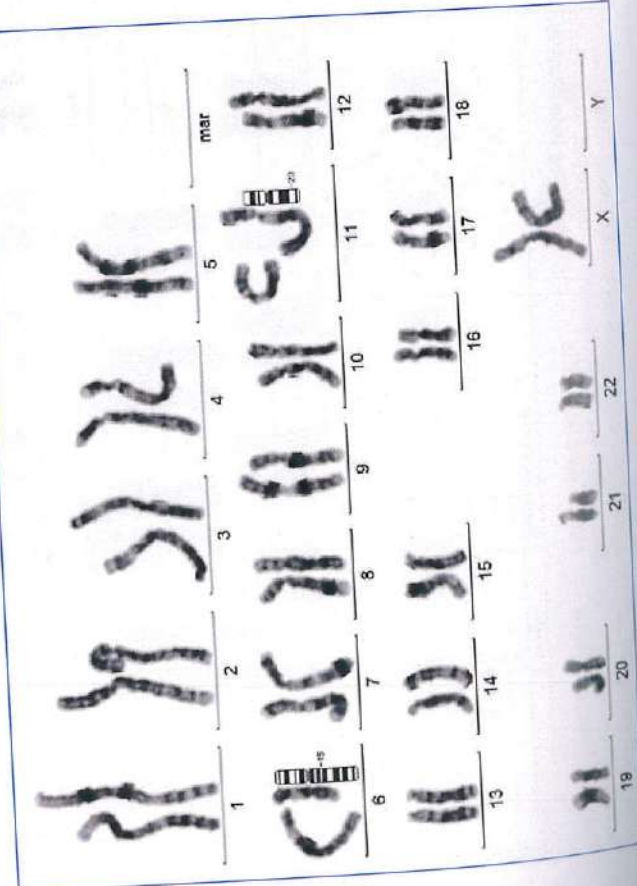 1 2 3 4 5 mar
6 -15 7 8 9 10 11 -23 12
13 14 15 16 17 18
19 20 21 22 X Y